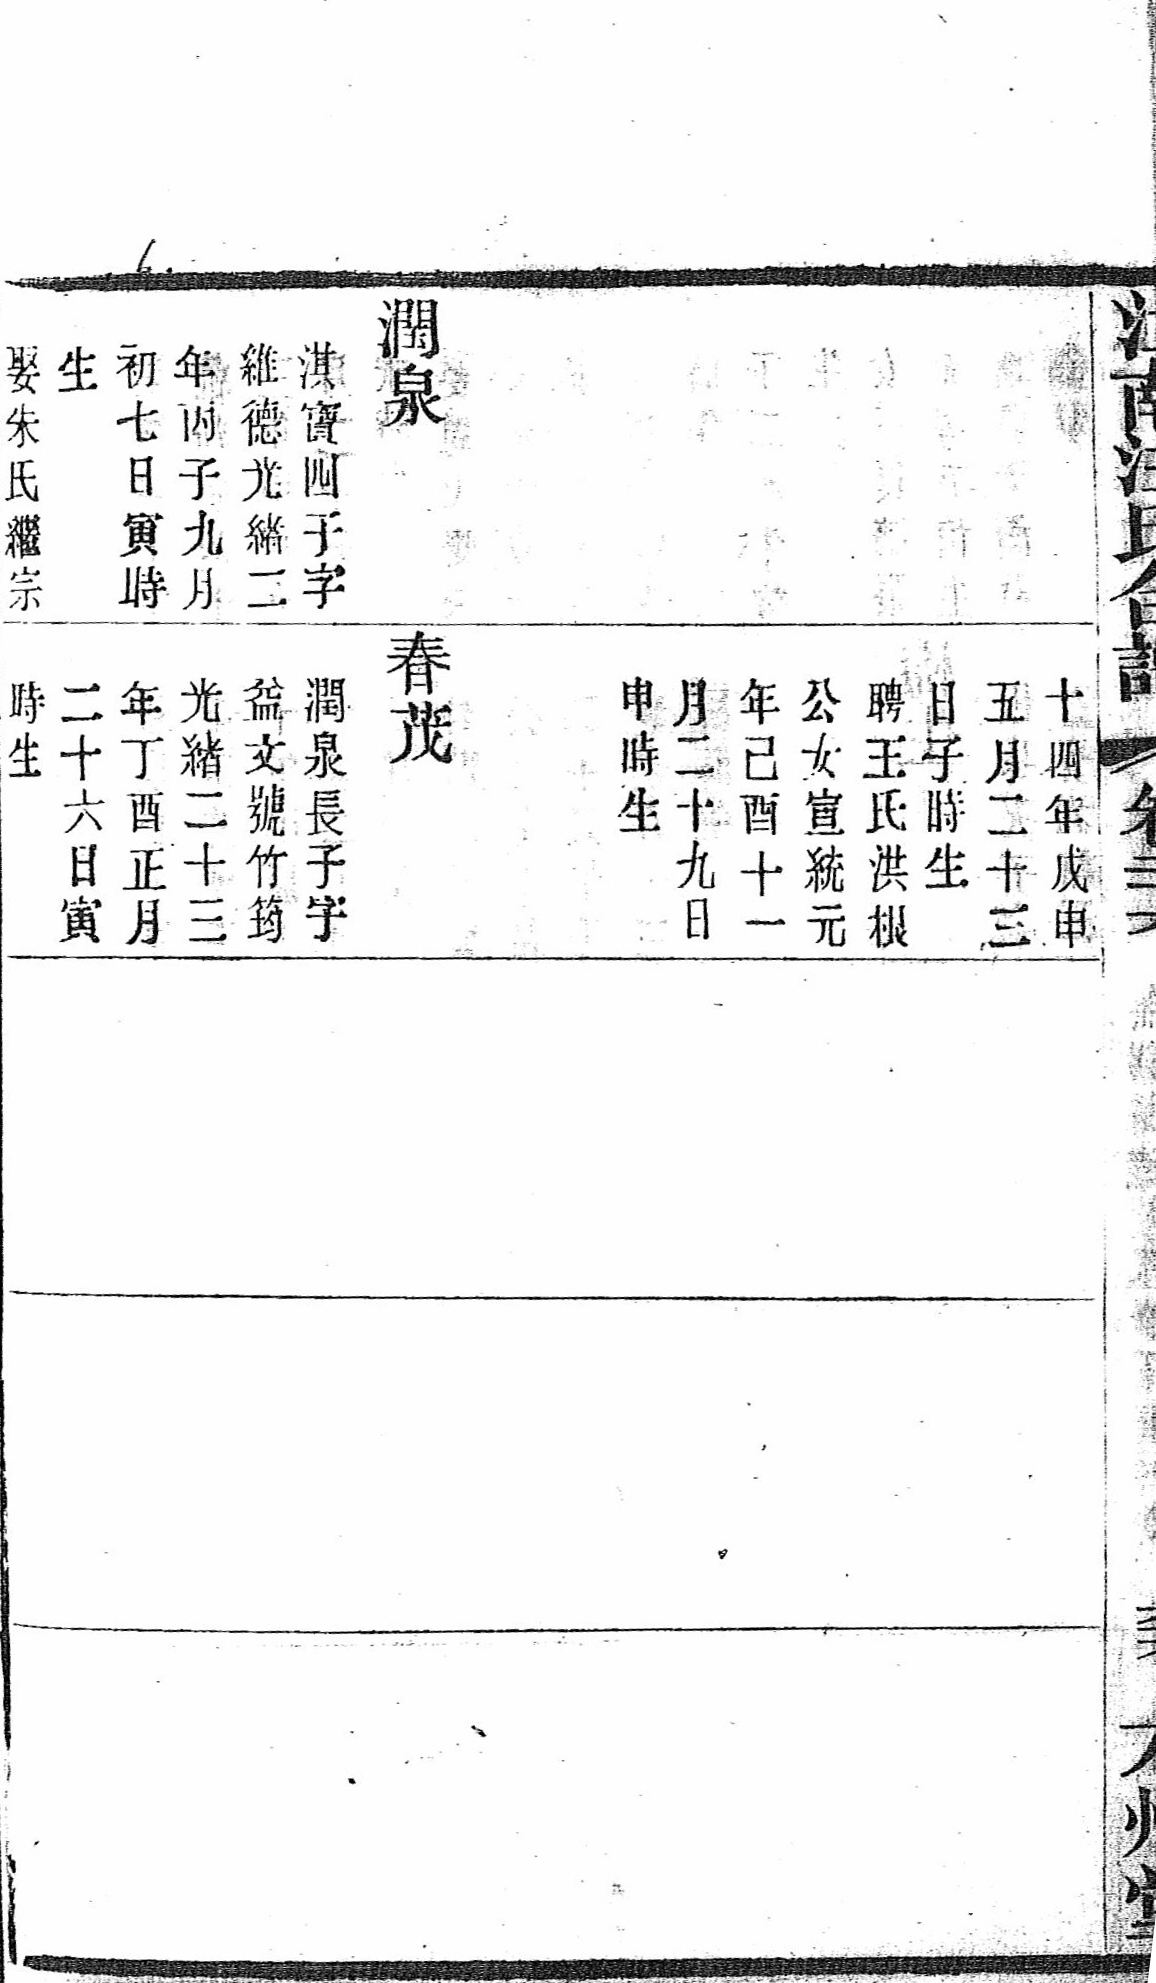 潤泉
淇寶四子字
維德光緒二
年丙子九月
初七日寅時
生
娶朱氏繼宗
十四年戊申
五月二十三
日子時生
聘王氏洪根
公女宣統元
年己酉十一
月二十九日
申時生
春茂
潤泉長子字
益文號竹筠
光緒二十三
年丁酉正月
二十六日寅
時生